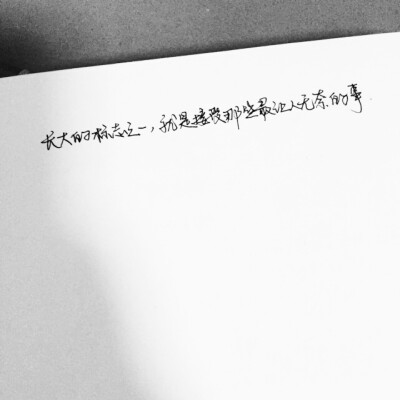 长大的标志之一，就是接受那些最让人无奈的事